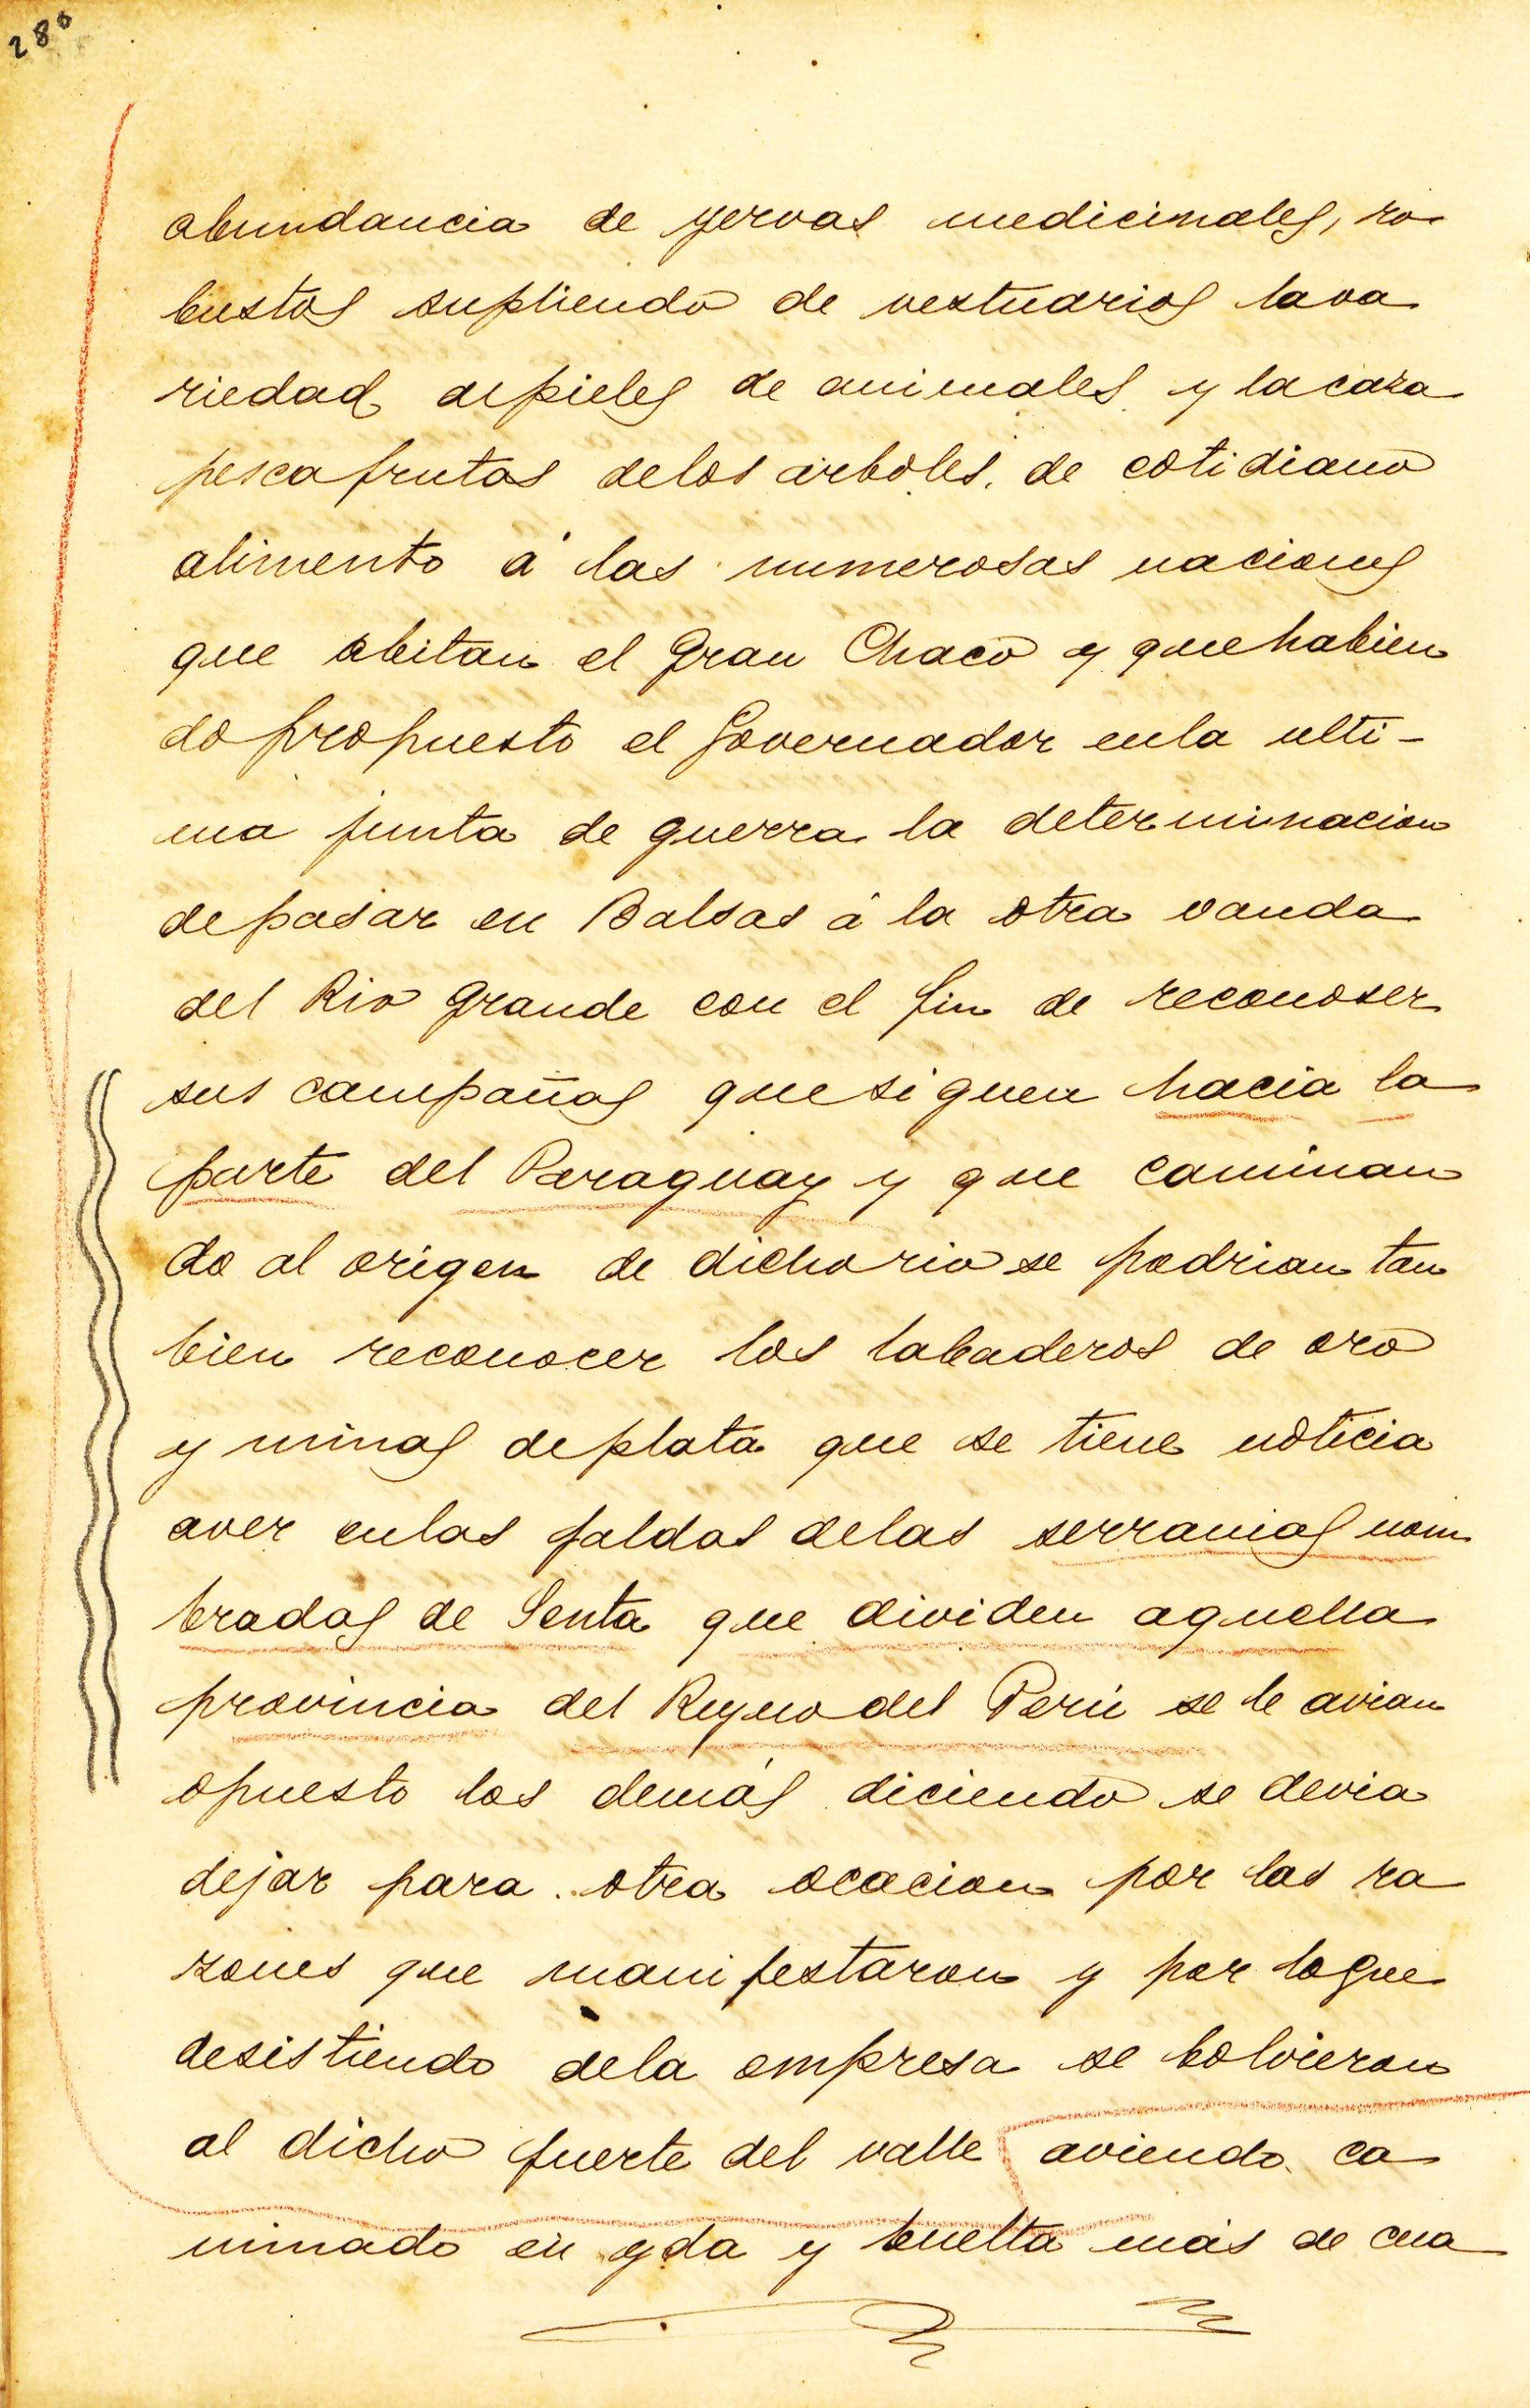 280
abundancia de yervas medicinales, ro
bustos supliendo de vestuarios lava
riedad depieles de animales y lacaza
pescafrutas delos arboles. de cotidiano
alimento á las numerosas naciones
que abitan el Gran Chaco y quehabien
do propuesto el Governador enla ulti-
ma junta de guerra la determinacion
depasar en Balsas á la otra vanda
del Rio Grande con el fin de reconoser
sus campañas quesiguen hacia la
parte del Paraguay y que caminan
do al origen de dichorio se podrian tan
bien reconocer los labaderos de oro
y minas deplata que se tiene noticia
aver enlas faldas delas serranias nom
bradas de Senta que dividen aquella
provincia del Reyno del Perú se le avian
opuesto los demás diciendo se devia
dejar para otra ocacion por las ra
zones que manifestaron y por loque
desistiendo dela empresa se bolvieron
al dicho fuerte del valle aviendo ca
minado en yda y buelta más de cua